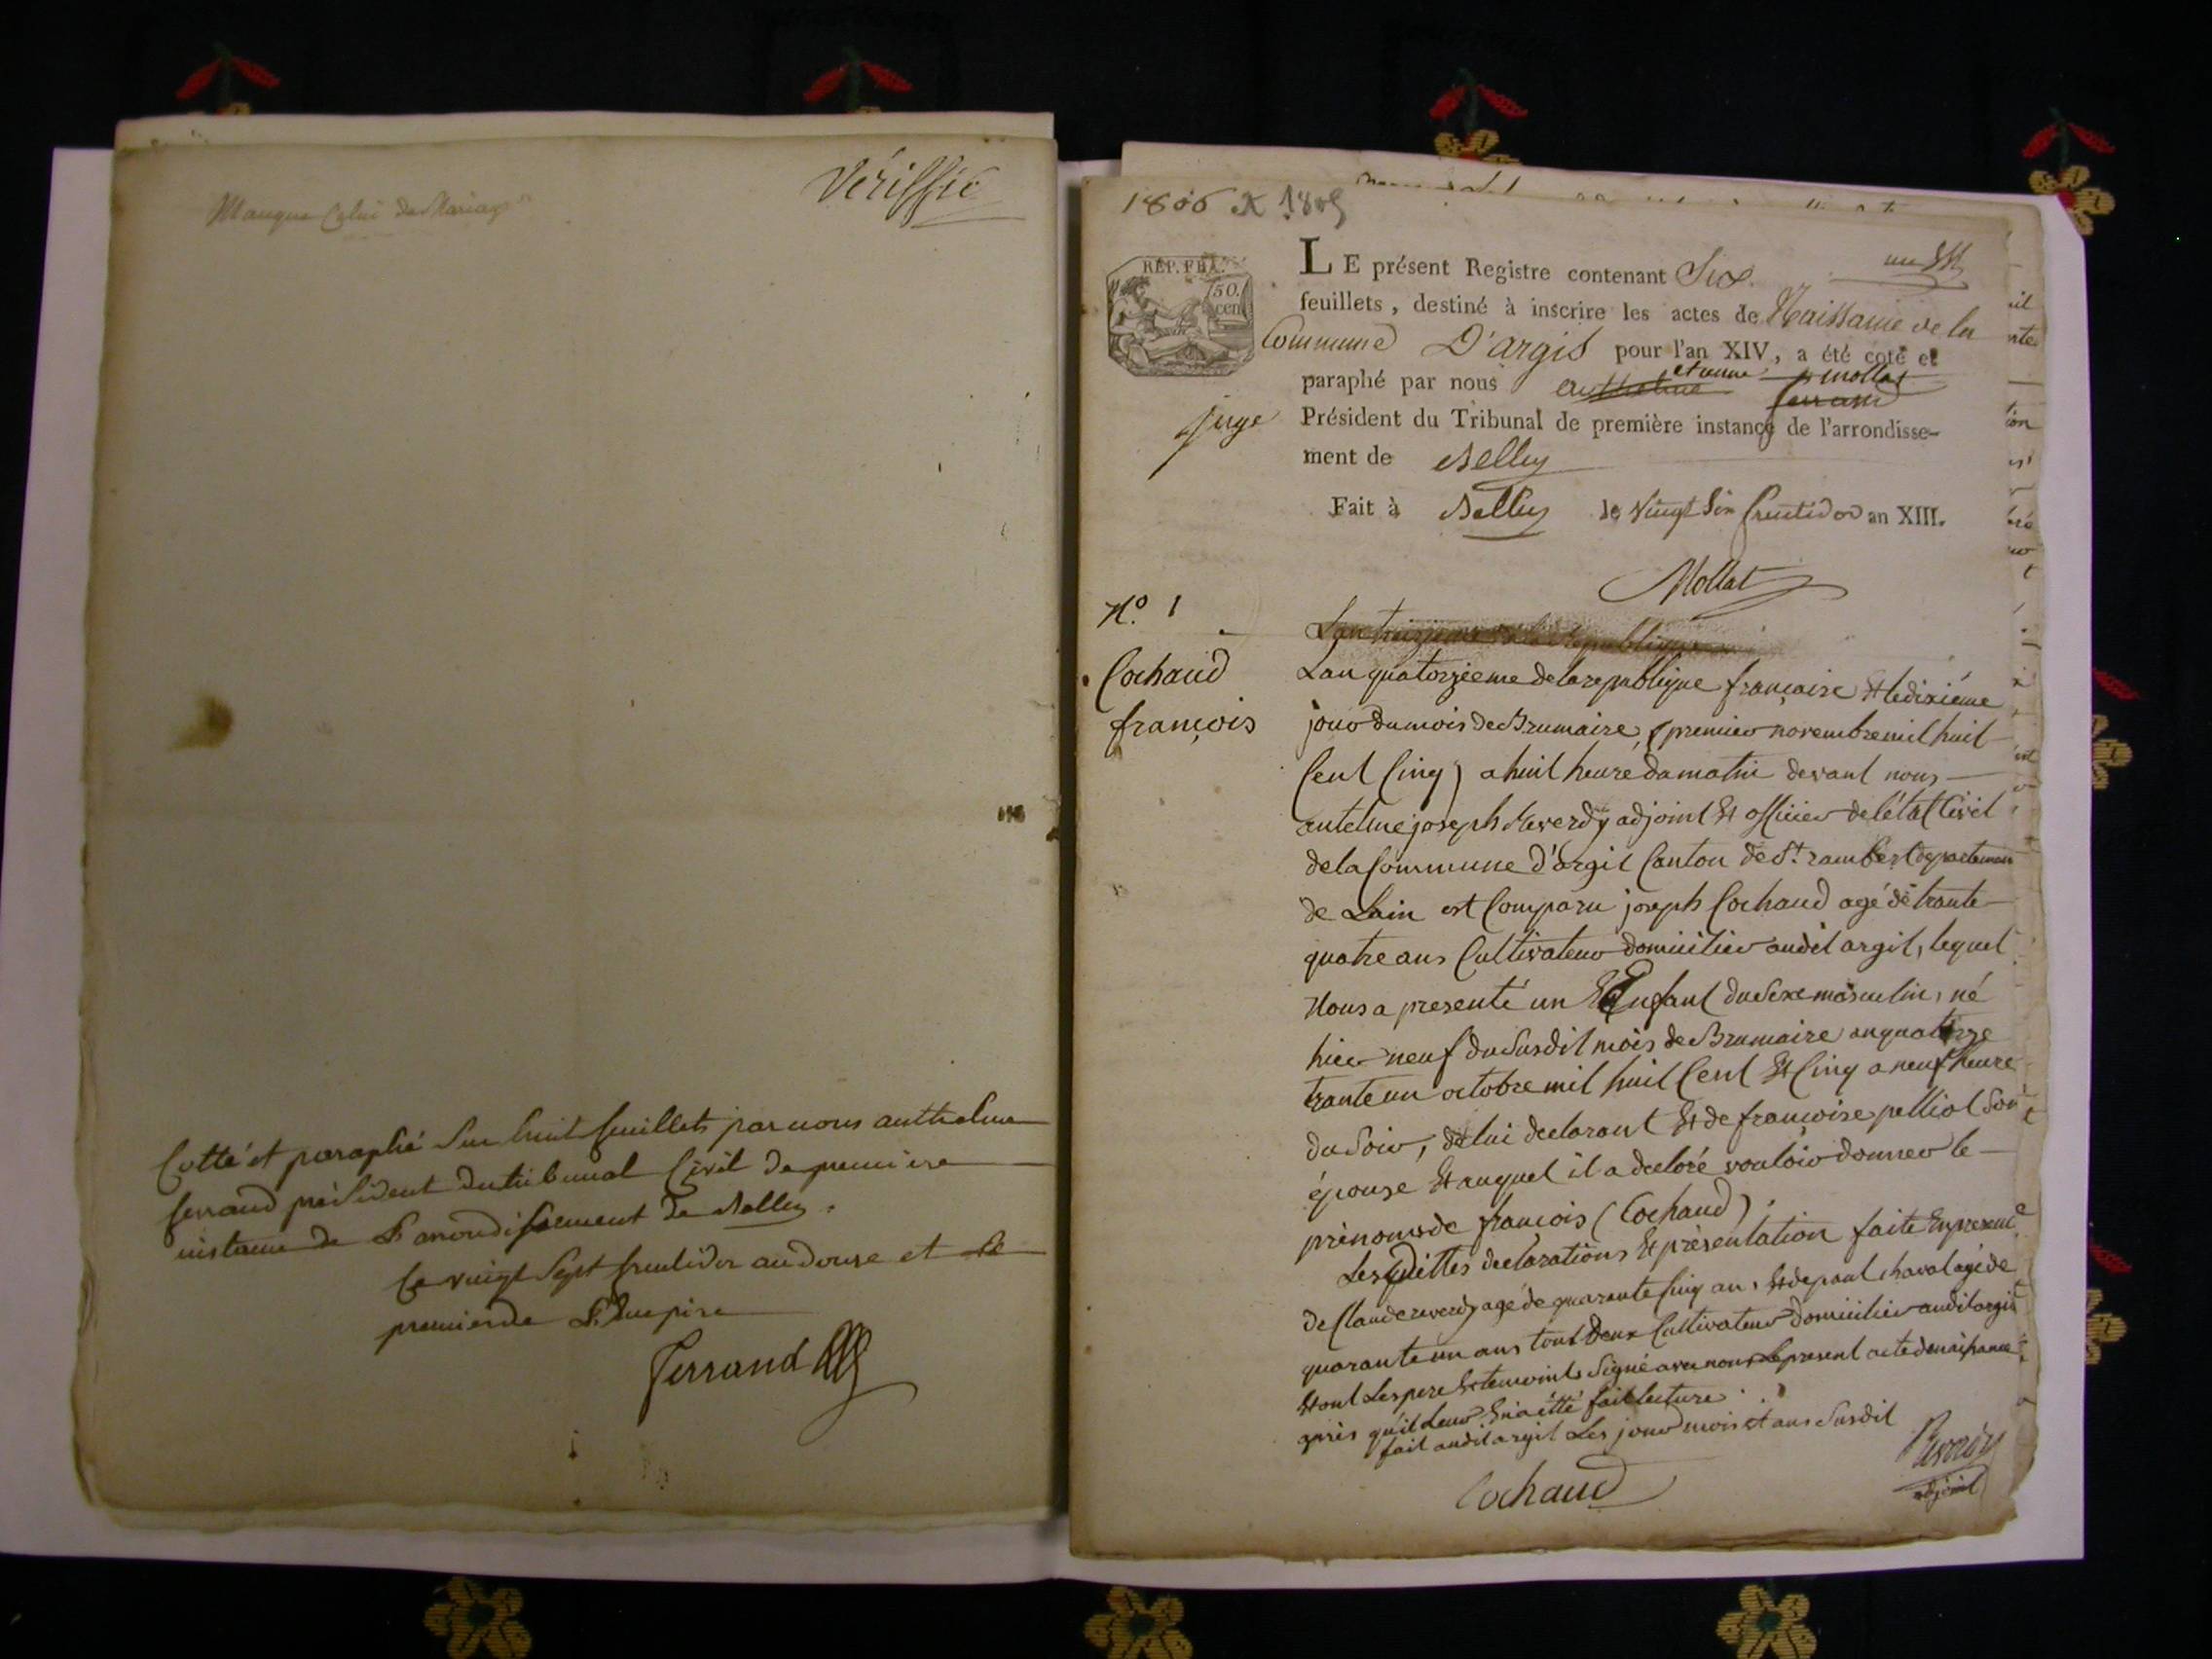 Manque Celui de Mariage
Vériffié
Cotté et paraphé Sur huit feuillets par nous anthelme
ferrand président du tribunal Civil de premiere
instance de L'arrondissement de Belley.
Ce vingt Sept fructidor an douze et le
premier de L'Empire
Ferrand
1806 X 1805
REP. FRA.
50.
cen
LE présent Registre contenant Six
un
feuillets, destiné à inscrire les actes de Naissance de la
Commune D'argis pour l'an XIV, a été coté et
etienne mollat
paraphé par nous anthelme ferrand
juge
Président du Tribunal de première instance de l'arrondisse-
ment de Belley
Fait à Belley le vingt Six fructidor an XIII.
Mollat
N.º 1
Cochaud
françois
L'an treizieme de la Republique
L'an quatorzieme de la republique française Et le dixiéme
jour du mois de Brumaire, (premier novembre mil huit
Cent Cinq) a huit heure du matin devant nous
antelme joseph Reverdy adjoint Et officier de l'état Civil
de la Commune d'argil Canton de St. rambert departement
de Lain est Comparu joseph Cochaud agé de trante
quatre ans Cultivateur domicilier audit argil, lequel
Nous a presenté un Enfant du Sexe masculin, né
hier neuf du Susdit mois de Brumaire an quatorze
trante un octobre mil huit Cent Et Cinq a neuf heure
du Soir, de lui declarant Et de françoise pelliot Son
épouse Et auquel il a declaré vouloir donner le
prénoms de francois (Cochaud).
Lesquittes declarations Et présentation faite En presence
de Claude reverdy agé de quarante Cinq ans, Et de paul chaval agé de
quarante un ans tout Deux Cultivateur Domicilier audit argil
Et ont Les pere Et temoints Signé avec nous Le present acte de naissance
après qu'il Leur En a été fait lecture.
fait audit argil Les jour mois et ans Susdit
Cochaud
Reverdy
adjoint